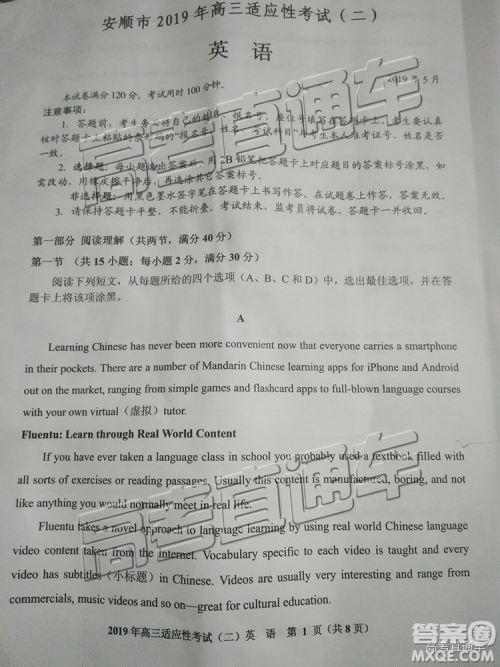 安顺市 2019 年高三适应性考试（二）
英 语
2019 年 5 月
本试卷满分 120 分，考试用时 100 分钟。
注意事项：
1. 答题前，考生务必将自己的姓名、报名号、座位号填写在答题卡上。考生要认真
核对答题卡上粘贴的条形码的“报名号、姓名、考试科目”与考生本人准考证号、姓名是否
一致。
2. 选择题：每小题选出答案后，用 2B 铅笔把答题卡上对应题目的答案标号涂黑，如
需改动，用橡皮擦干净后，再选涂其它答案标号。
非选择题：用黑色墨水签字笔在答题卡上书写作答。在试题卷上作答，答案无效。
3. 请保持答题卡平整，不能折叠。考试结束，监考员将试卷、答题卡一并收回。
第一部分 阅读理解（共两节，满分 40 分）
第一节 （共 15 小题；每小题 2 分，满分 30 分）
阅读下列短文，从每题所给的四个选项（A、B、C 和 D）中，选出最佳选项，并在答
题卡上将该项涂黑。
A
Learning Chinese has never been more convenient now that everyone carries a smartphone
in their pockets. There are a number of Mandarin Chinese learning apps for iPhone and Android
out on the market, ranging from simple games and flashcard apps to full-blown language courses
with your own virtual（虚拟）tutor.
Fluentu: Learn through Real World Content
If you have ever taken a language class in school you probably used a textbook filled with
all sorts of exercises or reading passages. Usually this content is manufactured, boring, and not
like anything you would normally meet in real life.
Fluentu takes a novel approach to language learning by using real world Chinese language
video content taken from the Internet. Vocabulary specific to each video and every
video has subtitles（小标题）in Chinese. Videos are usually very interesting and range from
commercials, music videos and so on—great for cultural education.
2019 年高三适应性考试（二）英 语 第 1 页（共 8 页）
高考直通车
高考直通车
高考直通车
答案圈
MXQE.COM